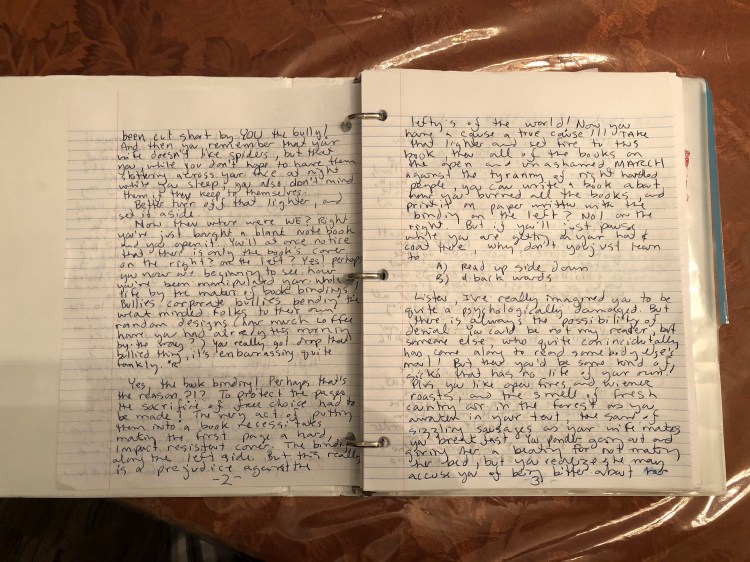 been cut short by YOU the bully!
And then you remember that your
wife doesn't like spiders, but that
now, while you don't hope to have them
clottering across your face at night
while you sleep, you also don't mind
them if they keep to themselves.
Better turn off that lighter, and
set it aside.
Now then where were WE? Right
you've just bought a blank note book
and you open it. You'll at once notice
that there is only the book's cover
on the right? or the left? Yes! perhaps
you now are beginning to see how
you've been manipulated your whole
life by the makers of book bindings,
Bullies, corporate bullies bending the
weak minded folks to their own
random designs (how much coffee
have you had already this morning
by the way?) You really got drop that
bullied thing, it's embarrassing quite
frankly.
Yes the book binding! Perhaps that's
the reason, ?!? To protect the pages,
the sacrifice of free choice had to
be made! The very act of putting
them into a book necessitates
making the first page a hard
impact resistent cover. The binding
along the left side. But this really
is a prejudice against the
-2-
lefty's of the world! Now you
have a cause a true cause!!! TAKE
that lighter and set fire to this
book then all of the books on
the open are unashamed MARCH
against the tyranny of right handed
people, you can write a book about
how you burned all the books, and
print it on paper written with the
binding on the left? No! on the
right. But if you'll just pause
while you are getting on your hat &
coat there, why don't you just learn
to
A) Read up side down
B) back wards
Listen, I've really imagined you to be
quite a psychologically damaged. But
there is always the possibility of
denial. You could be not my reader, but
someone else, who quite coincidentally
has come along to read somebody else's
mail! But then you'd be some kind of
sicko that has no life of your own!
Plus you like open fires and wiener
roasts, and the smell of fresh
country air in the forest as you
awaken in your tent the sound of
sizzling sausages as your wife makes
you breakfast. You ponder going out and
giving her a beating for not making
her bed, but you realize she may
accuse you of being bitter about
-3-